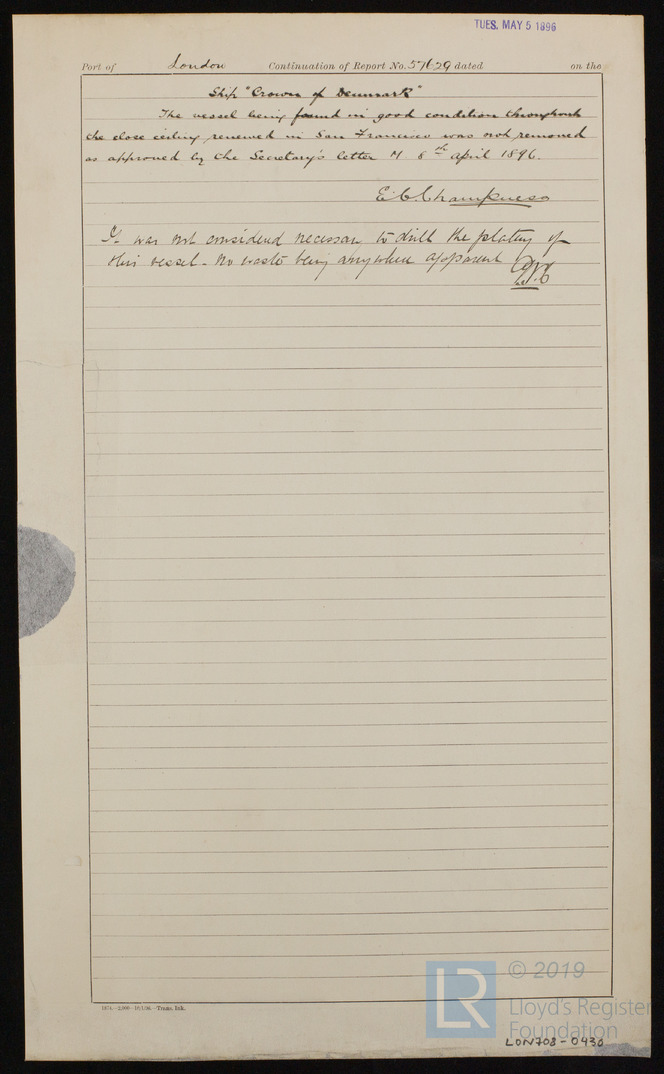 TUES. MAY 5 1896
Port of London Continuation of Report No. 57629 dated on the
Ship "Crown of Denmark"
The vessel being found in good condition throughout
the close ceiling renewed in San Francisco was not removed
as approved by the Secretary's letter M 8th April 1896.
It was not considered necessary to drill the plating of
this vessel - no waste being anywhere apparent
© 2019
LR
Lloyd's Register
Foundation
LON708-0430